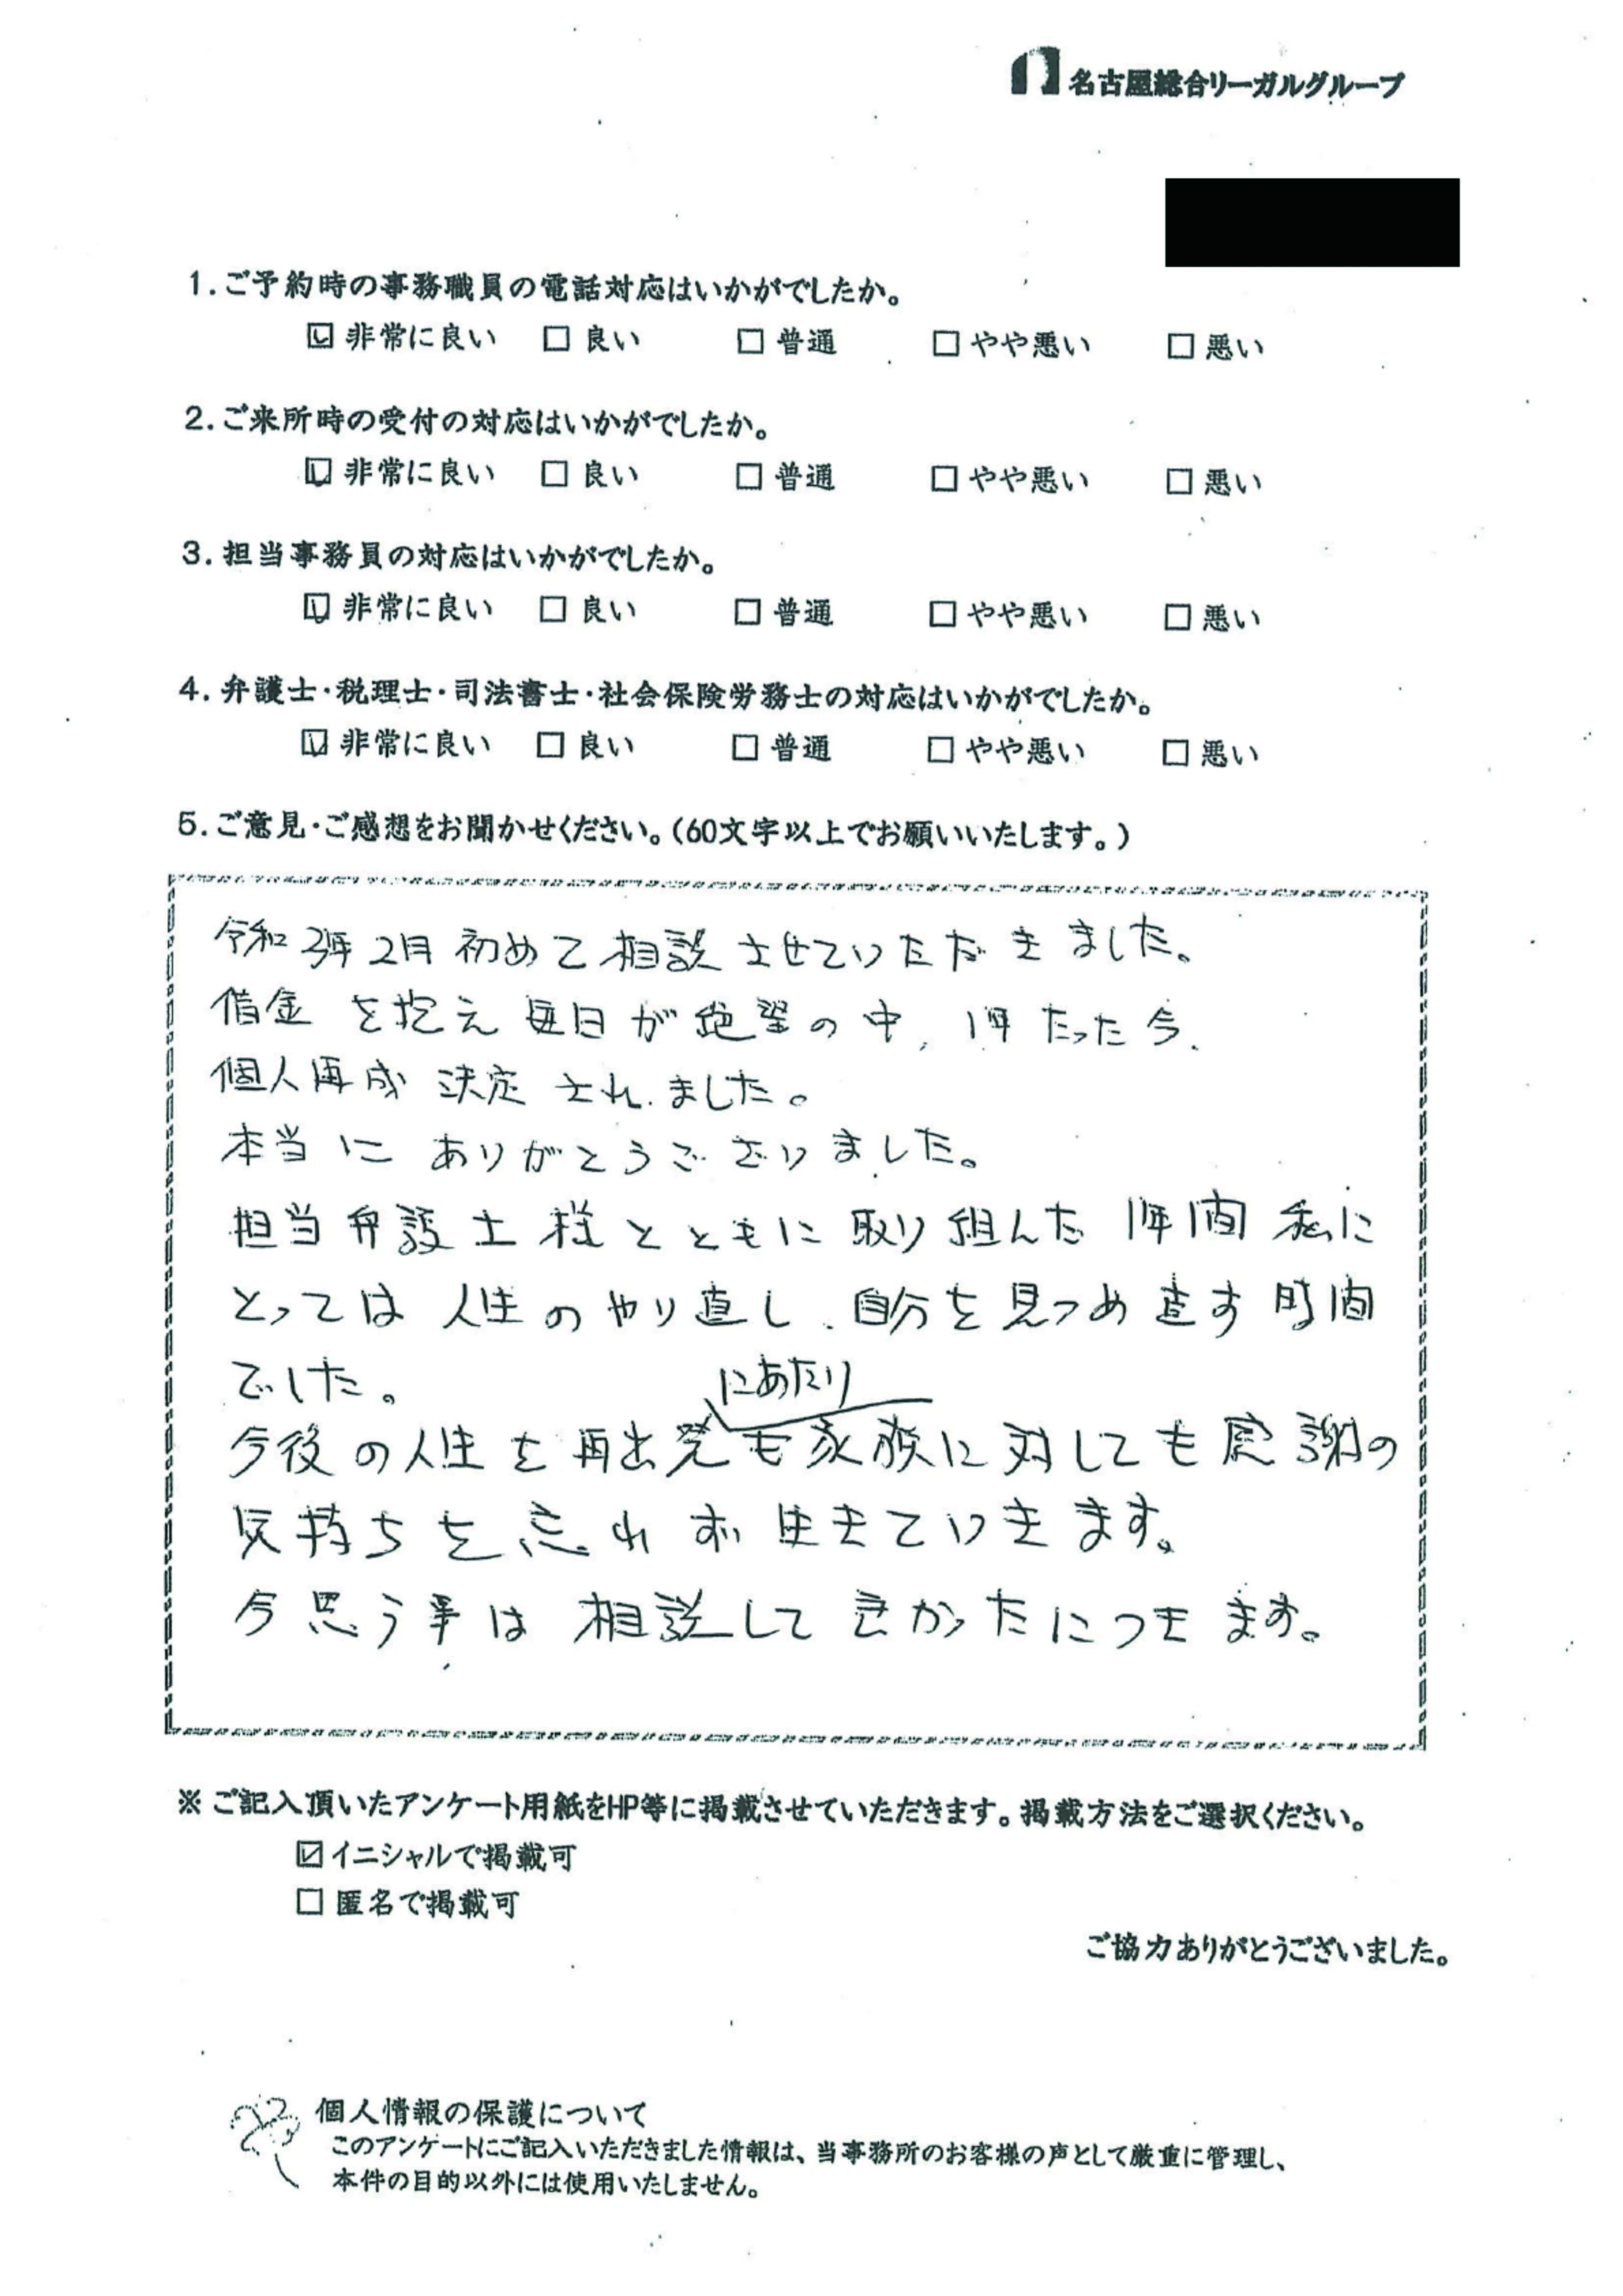 名古屋総合リーガルグループ
1.ご予約時の事務職員の電話対応はいかがでしたか。
☑ 非常に良い □ 良い □ 普通 □ やや悪い □ 悪い
2.ご来所時の受付の対応はいかがでしたか。
☑ 非常に良い □ 良い □ 普通 □ やや悪い □ 悪い
3.担当事務員の対応はいかがでしたか。
☑ 非常に良い □ 良い □ 普通 □ やや悪い □ 悪い
4.弁護士・税理士・司法書士・社会保険労務士の対応はいかがでしたか。
☑ 非常に良い □ 良い □ 普通 □ やや悪い □ 悪い
5.ご意見・ご感想をお聞かせください。(60文字以上でお願いいたします。)
令和3年2月 初めて相談させていただきました。
借金を抱え毎日が絶望の中、1年たった今、
個人再成 決定されました。
本当にありがとうございました。
担当弁護士様とともに取り組んだ1年間 私に
とっては人生のやり直し、自分を見つめ直す時間
でした。
にあたり
今後の人生を再出発も家族に対しても感謝の
気持ちを忘れず生きていきます。
今思う事は相談してよかったにつきます。
※ご記入頂いたアンケート用紙をHP等に掲載させていただきます。掲載方法をご選択ください。
☑イニシャルで掲載可
□ 匿名で掲載可
ご協力ありがとうございました。
個人情報の保護について
このアンケートにご記入いただきました情報は、当事務所のお客様の声として厳重に管理し、
本件の目的以外には使用いたしません。